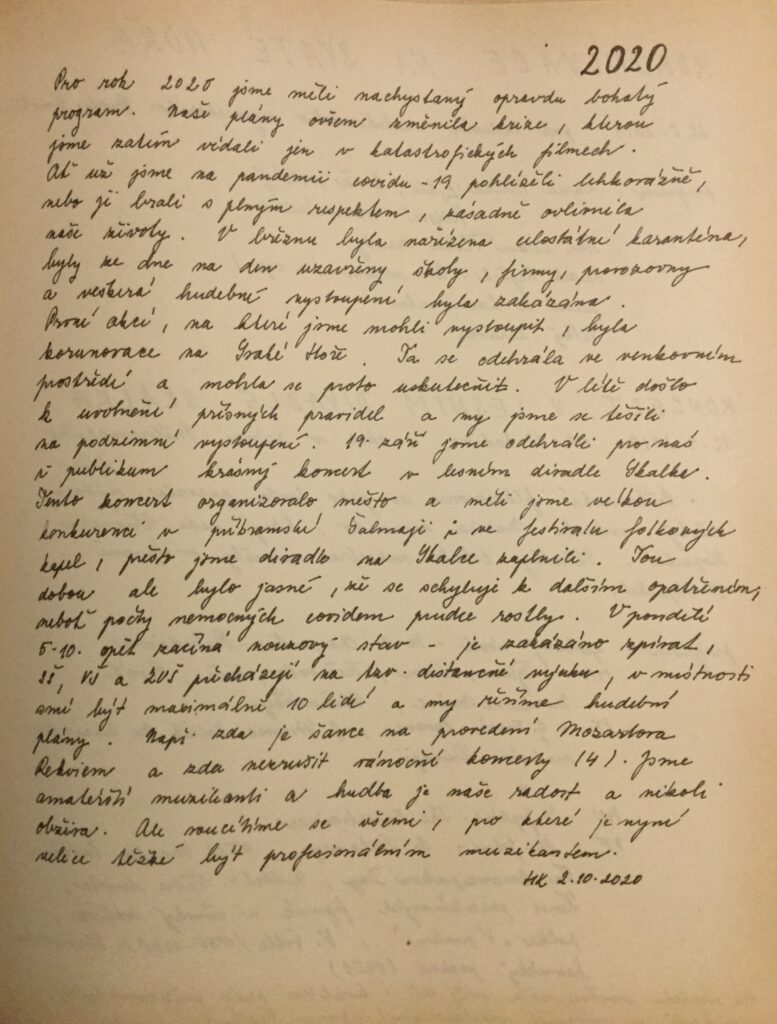 2020
Pro rok 2020 jsme měli nachystaný opravdu bohatý
program. Naše plány ovšem změnila krize, kterou
jsme zatím vídali jen v katastrofických filmech.
Ať už jsme na pandemii covidu-19 pohlíželi lehkovážně,
nebo ji brali s plným respektem, zásadně ovlivnila
naše životy. V březnu byla nařízena celostátní karanténa,
byly ze dne na den uzavřeny školy, firmy, provozovny
a veškerá hudební vystoupení byla zakázána.
První akcí, na které jsme mohli vystoupit, byla
korunovace na Svaté Hoře. Ta se odehrála ve venkovním
prostředí a mohla se proto uskutečnit. V létě došlo
k uvolnění přísných pravidel a my jsme se těšili
na podzimní vystoupení. 19. září jsme odehráli pro nás
i publikum krásný koncert v lesním divadle Skalka.
Tento koncert organizovalo město a měli jsme velkou
konkurenci v příbramské Šalmaji i ve festivalu folkových
kapel, přesto jsme divadlo na Skalce zaplnili. Tou
dobou ale bylo jasné, že se schyluje k dalším opatřením,
neboť počty nemocných covidem prudce rostly. V pondělí
5.10. opět začíná nouzový stav - je zakázáno zpívat,
SŠ, VŠ a ZUŠ přecházejí na tzv. distanční výuku, v místnosti
smí být maximálně 10 lidí a my řešíme hudební
plány. Např. zda je šance na provedení Mozartova
Rekviem a zda nezrušit vánoční koncerty (4). Jsme
amatérští muzikanti a hudba je naše radost a nikoli
obživa. Ale soucítíme se všemi, pro které je nyní
velice těžké být profesionálním muzikantem.
HK 2.10.2020